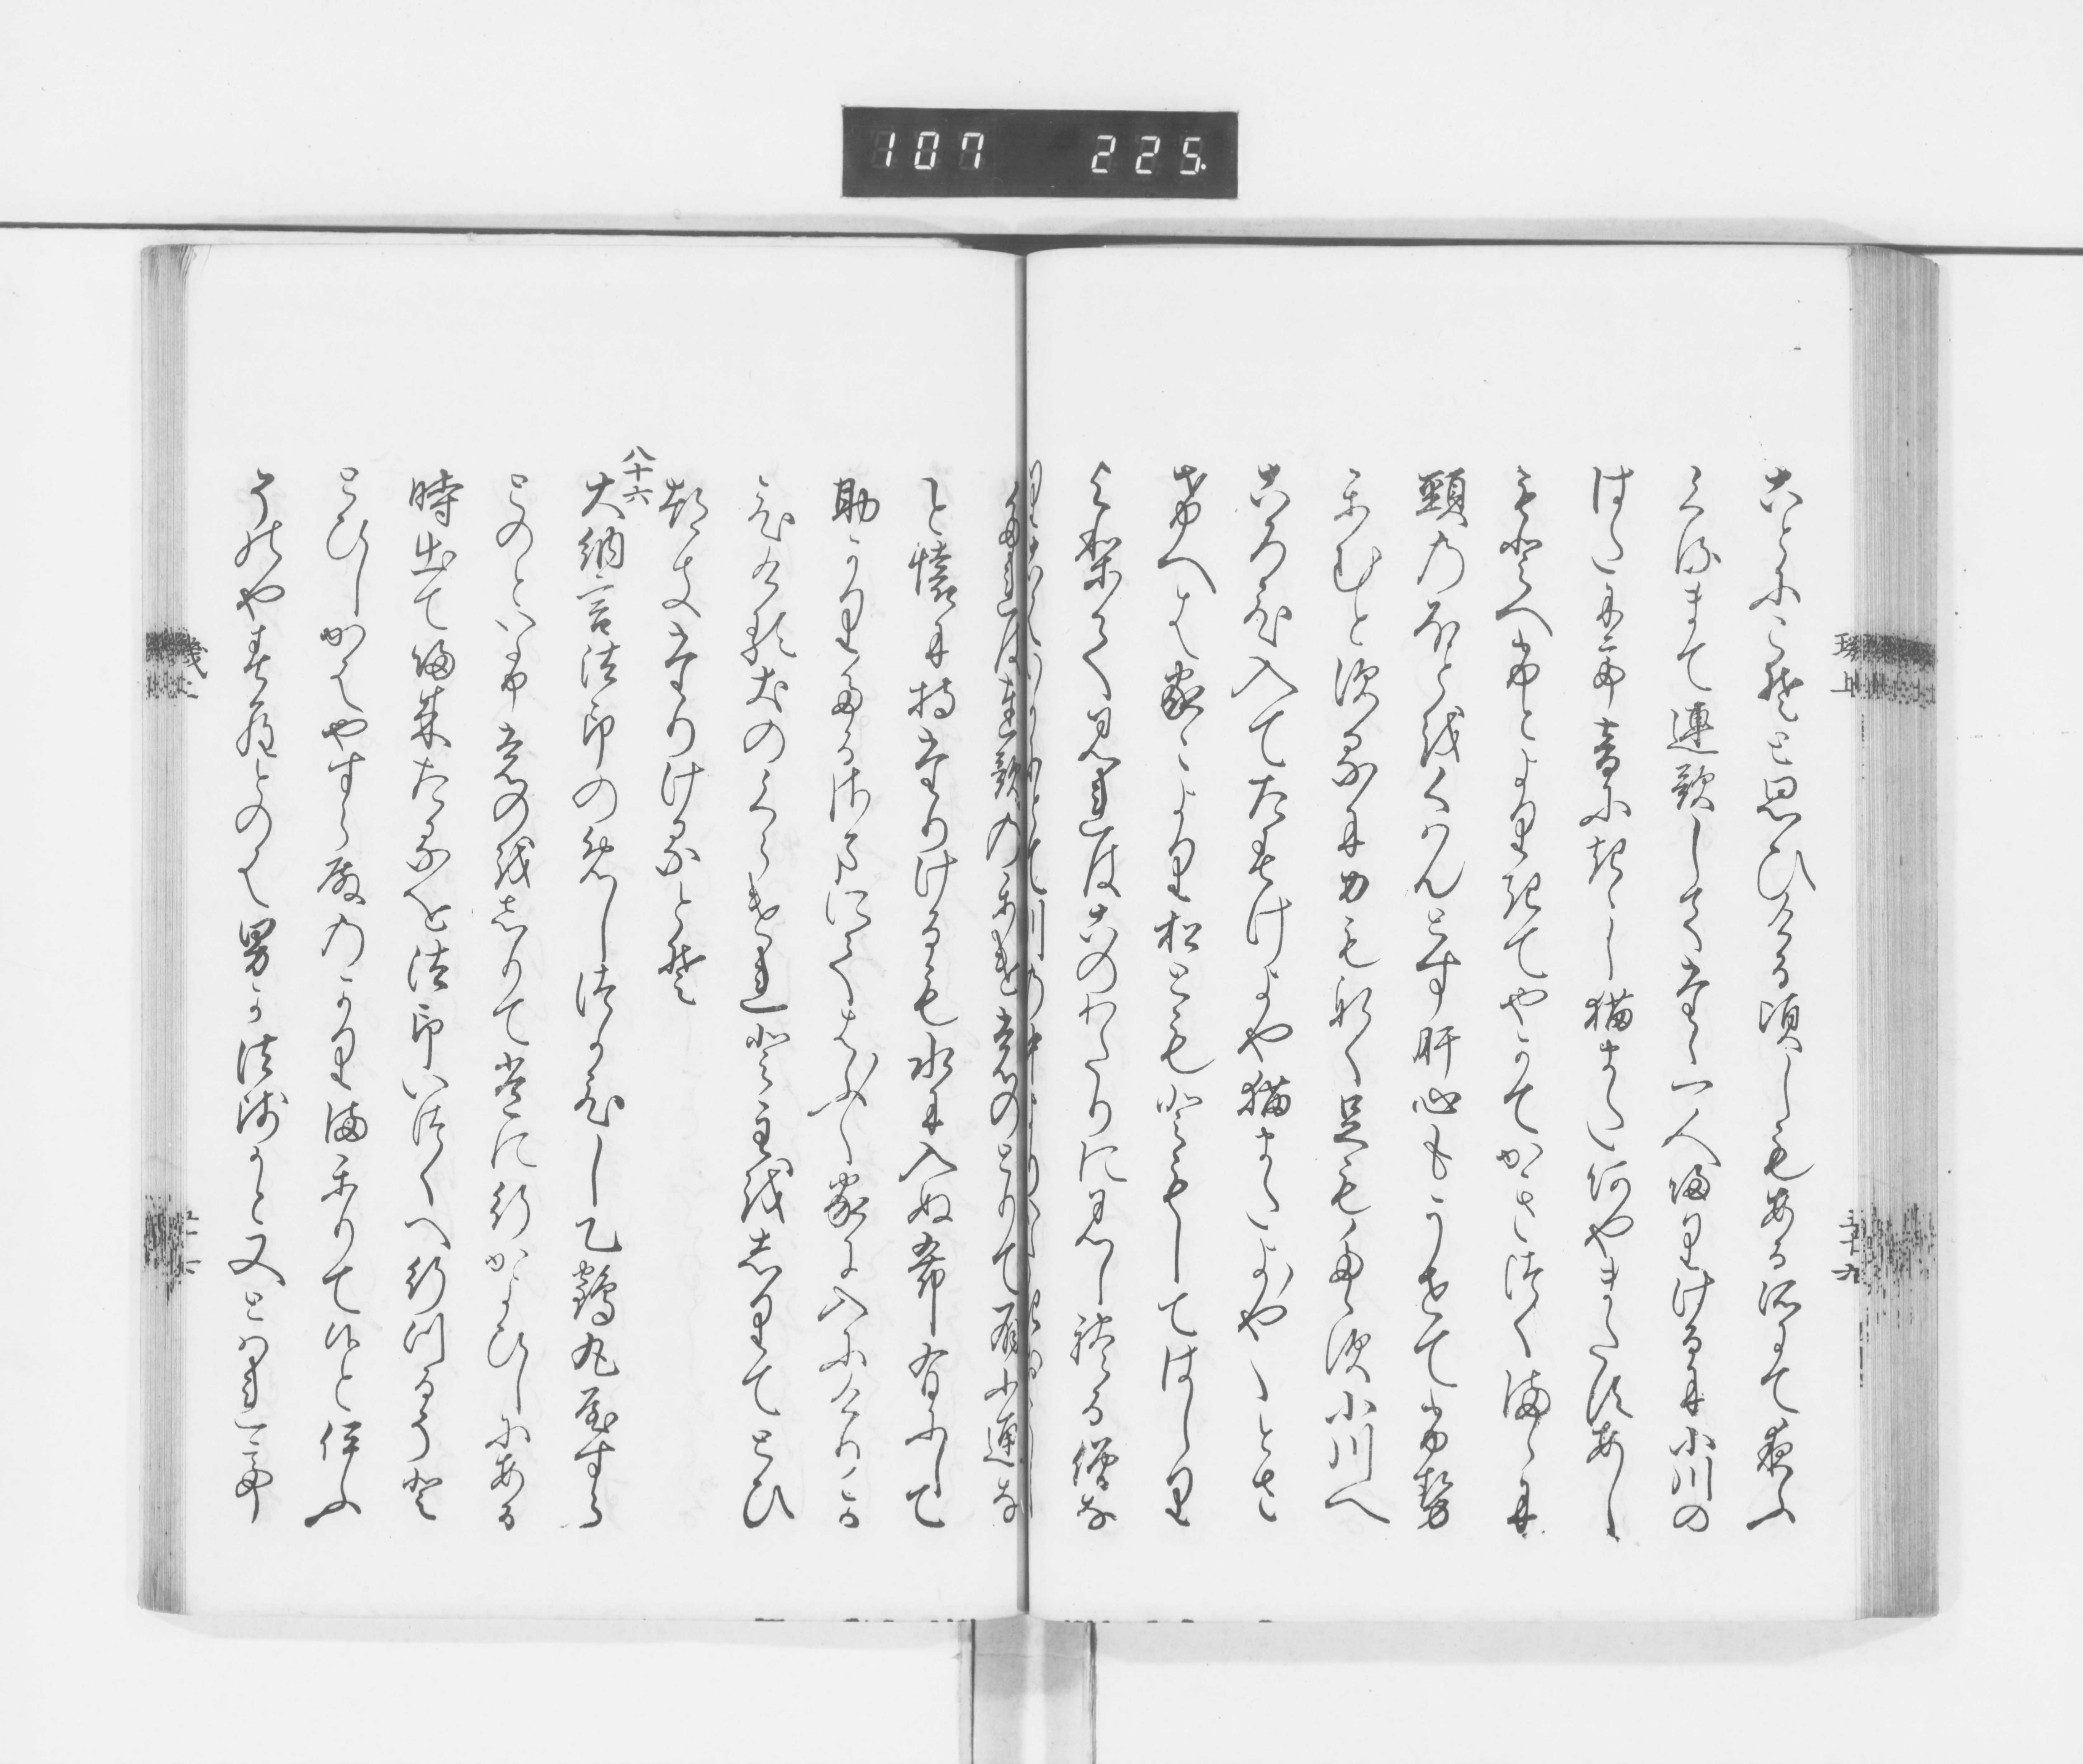 ことにこそと思ひける頃しもある所にて夜ふ
くるまて連歌してたゝ一人帰りけるに小川の
はたにて音に聞し猫またあやまたすあし
もとへふとより来てやかてかきつくまゝに
頸のほとをくはんとす肝心もうせてふせ
かむとするに力もなく足もたゝす小川へ
ころひ入てたすけよや猫またよや〱とさ
けへは家々より松ともともしてはしり
よりてみれはこのわたりに見しれる僧な
川の中より
たれは連歌のかけものとりて扇小箱な
と懐に持たりけるも水に入ぬ希有にして
助かりたるさまにてはふ〱家に入にけりか
ひける犬のくらけれと主をしりてとひ
つきたりけるとそ
八十六
大納言法印のめしつかひし乙鶴丸やすら
とのといふものをしりて常に行かよひしにある
時出て帰来たるを法印いつくへ行つるそと
とひしかはやすら殿のかりまかりて候といふ
そのやすらとのは男か法師かと又とはれて